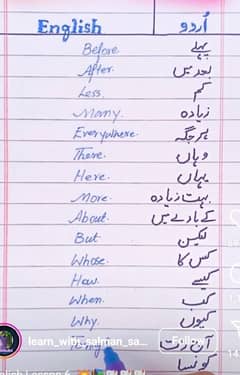 English اُردو
Before پہلے
After. بعد میں
Less. کم
Many. زیادہ
Everywhere. ہر جگہ
There. وہاں
Here. یہاں
More. بہت زیادہ
About. کے بارے میں
But لیکن
Whose. کس کا
How. کیسے
When. کب
Why. کیوں
learn_with_salman_sa... Follow
کونسا